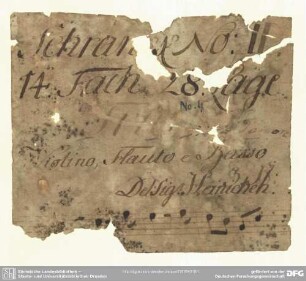 Schrank No: II
14 Fach 28. Lage
No: 4
Trio
Violino, Flauto e Basso
Del Sig:
Sächsische Landesbibliothek –
Staats- und Universitätsbibliothek Dresden
gefördert von der
Deutschen Forschungsgemeinschaft
DFG